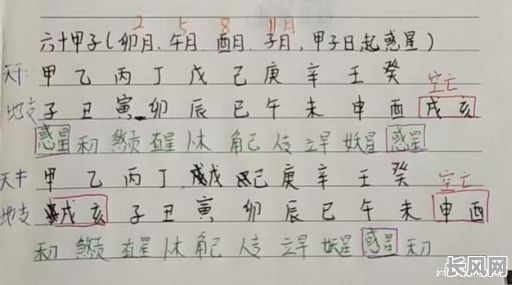 2 5 8 11月
六十甲子(卯月、午月、酉月、子月,甲子日起惑星)
天干:甲 乙 丙 丁 戊 己 庚 辛 壬 癸 空亡
地支 子 丑 寅 卯 辰 巳 午 未 申 酉 戌 亥
惑星 和 直星 木 角己 立早 妖星 惑星
天干 甲 乙 丙 丁 戊 己 庚 辛 壬 癸 空亡
地支 戌 亥 子 丑 寅 卯 辰 巳 午 未 申 酉
直星 角己 立早 妖星 惑星
长风网